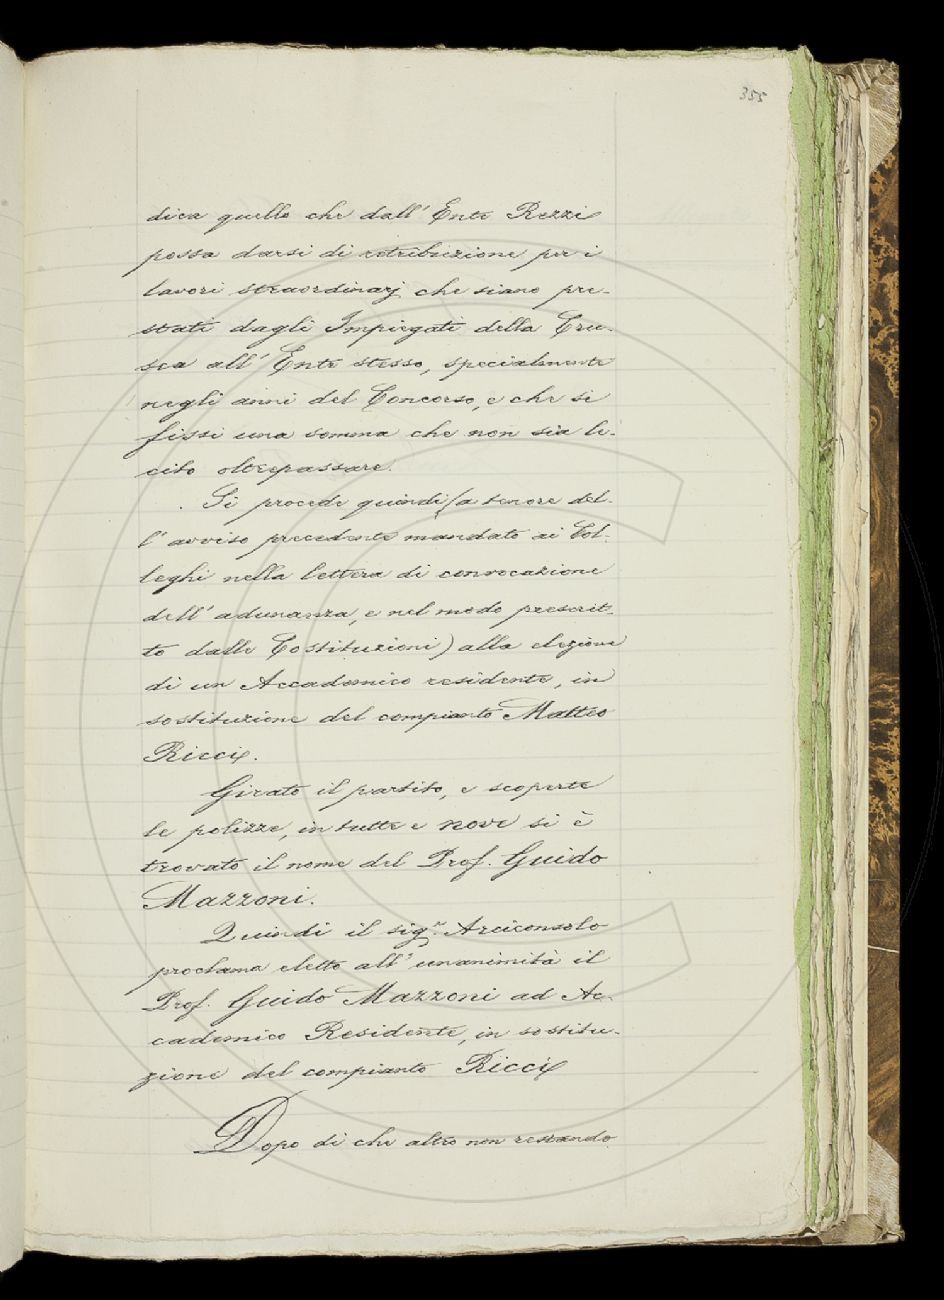 355
dica quello che dall' Ente Rezzi
possa darsi di retribuzione per i
lavori straordinarj che siano pre-
stati dagli Impiegati della Cru-
sca all' Ente stesso, specialmente
negli anni del Concorso, e che si
fissi una somma che non sia le-
cito oltrepassare.
Si procede quindi (a tenore del-
l' avviso precedente mandato ai Col-
leghi nella lettera di convocazione
dell' adunanza, e nel modo prescrit-
to dalle Costituzioni) alla elezione
di un Accademico residente, in
sostituzione del compianto Matteo
Ricci.
Girato il partito, e scoperte
le polizze, in tutte e nove si è
trovato il nome del Prof. Guido
Mazzoni.
Quindi il sigr. Arciconsolo
proclama eletto all' unanimità il
Prof. Guido Mazzoni ad Ac-
cademico Residente, in sostitu-
zione del compianto Ricci
Dopo di che altro non restando